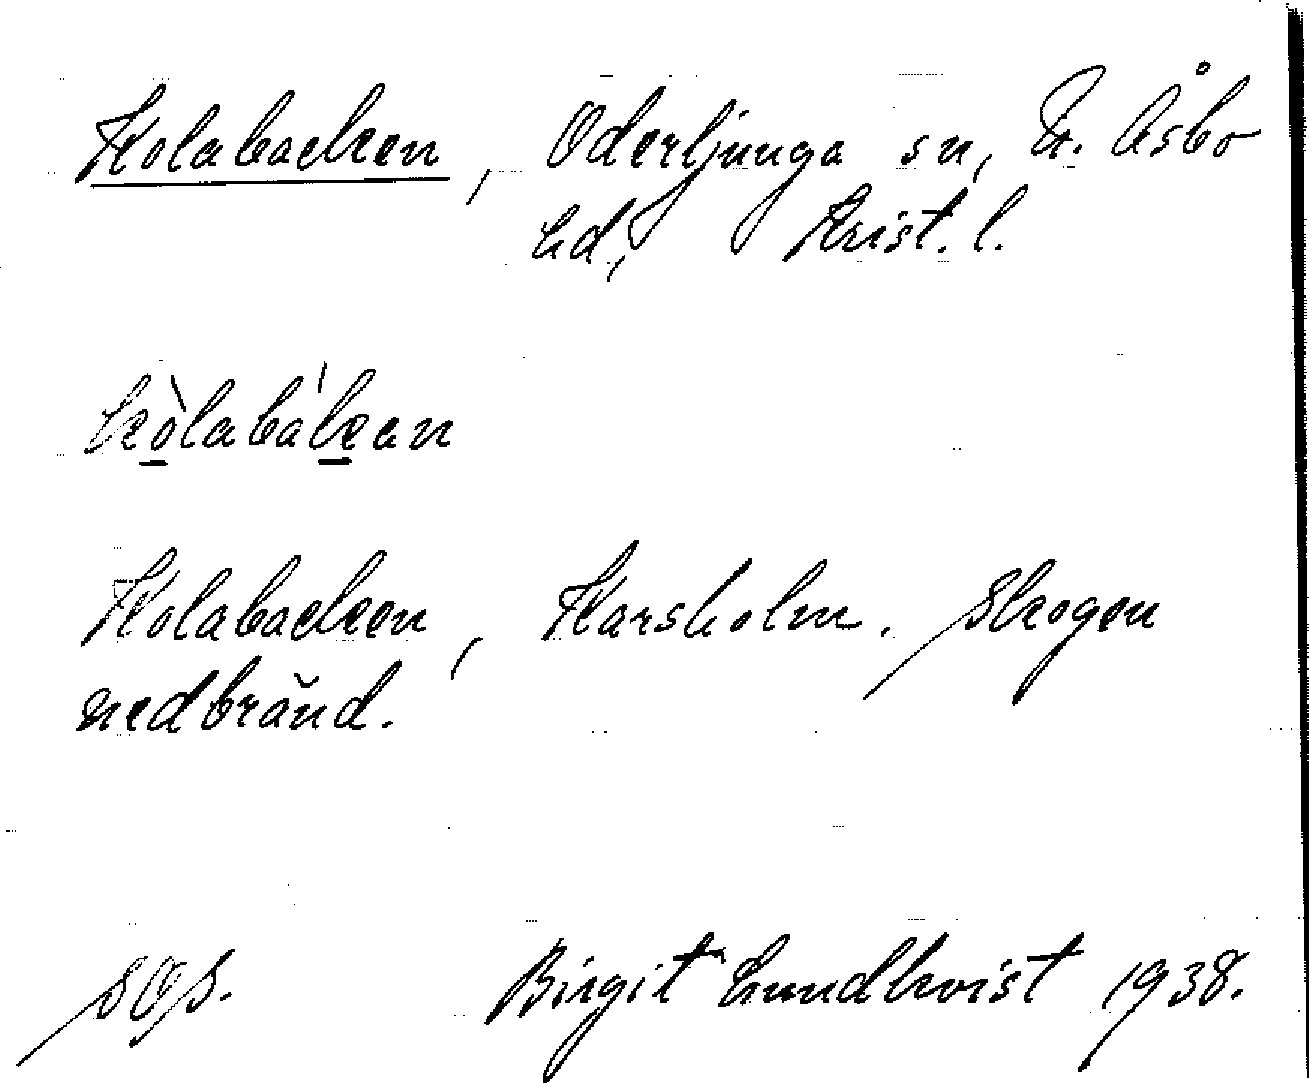 Kolabacken, Oderljunga sn, N. Åsbo
hd, Krist. l.
kòlabákan
Kolabacken, Karsholm. Skogen
nedbränd.
SOS. Birgit Lundkvist 1938.